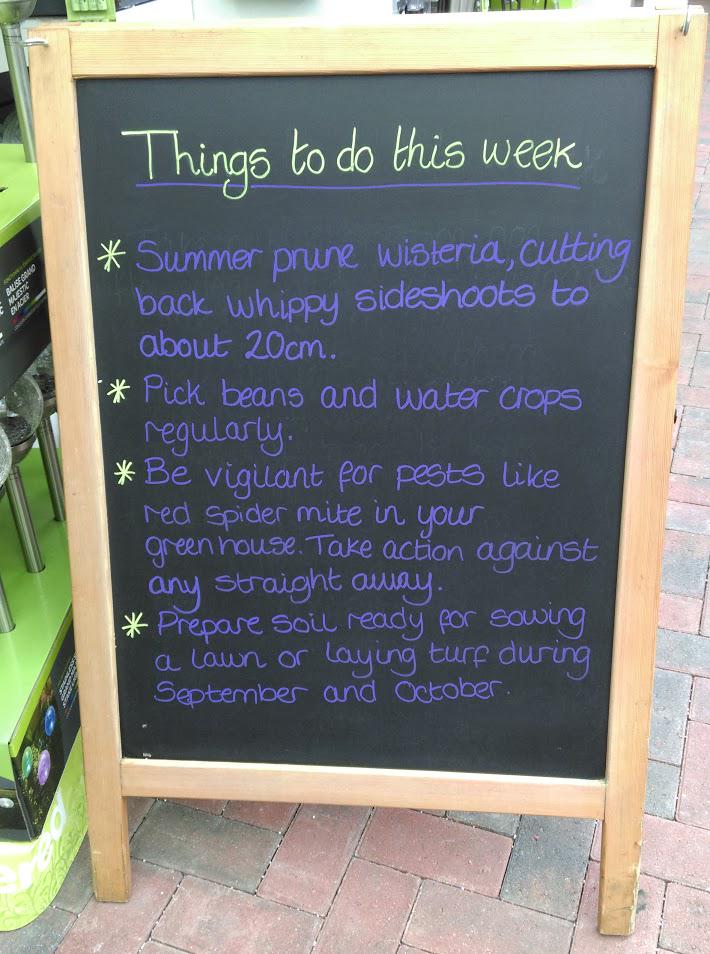 Things to do this week
* Summer prune wisteria, cutting
back whippy sideshoots to
about 20cm.
* Pick beans and water crops
regularly.
* Be vigilant for pests like
red spider mite in your
greenhouse. Take action against
any straight away.
* Prepare soil ready for sowing
a lawn or laying turf during
September and October.
BALISE GRAND
MAJESTIC
EN ACIER